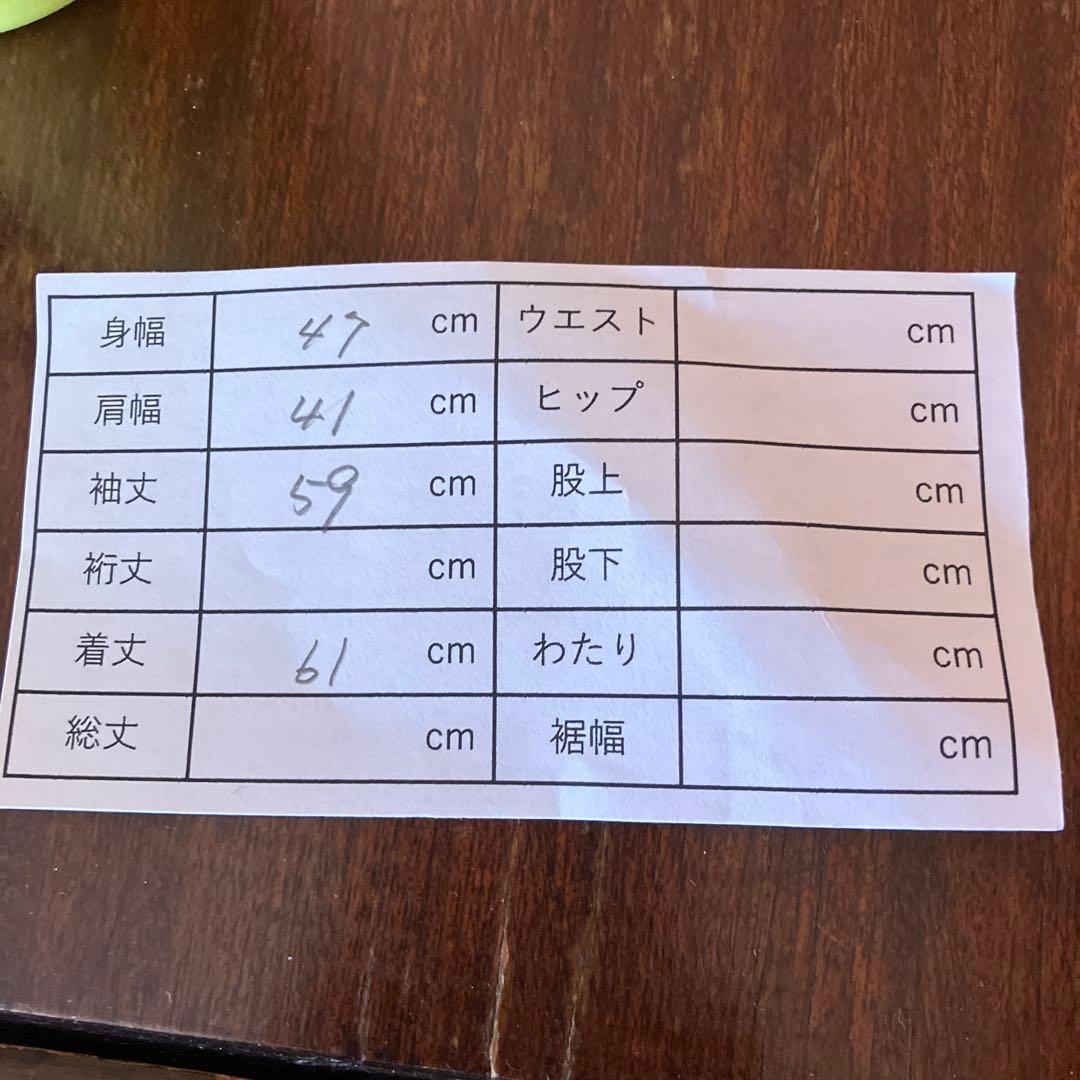 身幅 47 cm ウエスト cm
肩幅 41 cm ヒップ cm
袖丈 59 cm 股上 cm
裄丈 cm 股下 cm
着丈 61 cm わたり cm
総丈 cm 裾幅 cm